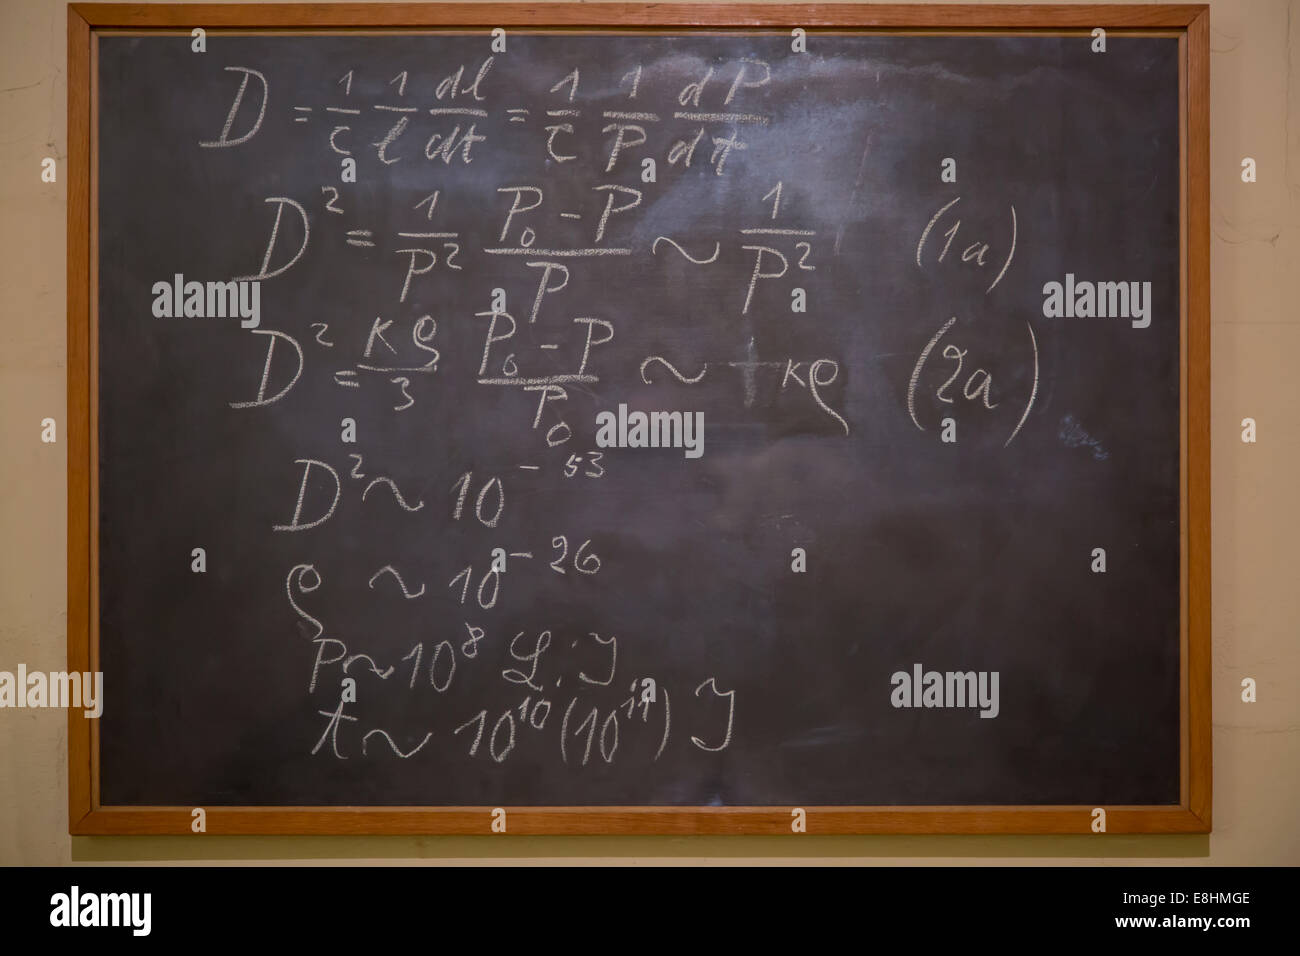 D = 1/c 1/l dl/dt = 1/c 1/P dP/dt
D² = 1/P² (P₀ - P)/P ~ 1/P² (1a)
D² = κρ/3 (P₀ - P)/P₀ ~ κρ (2a)
D² ~ 10⁻⁵³
ρ ~ 10⁻²⁶
P ~ 10⁸ L.J
t ~ 10¹⁰(10¹¹) J
alamy
alamy
alamy
alamy
alamy
alamy
Image ID: E8HMGE
www.alamy.com